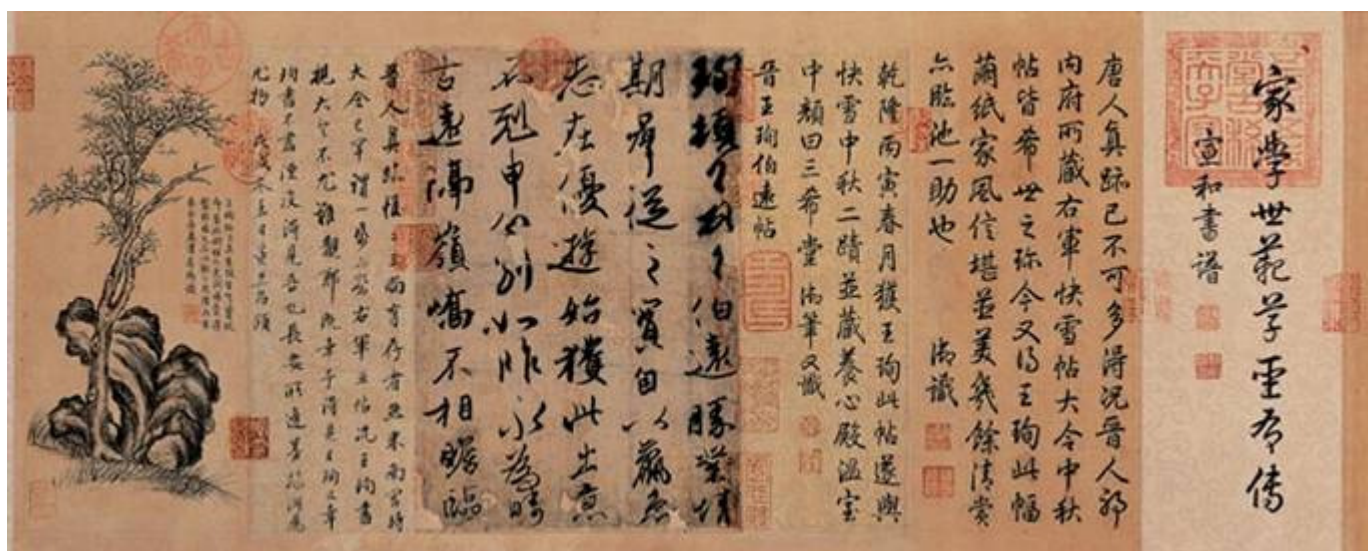 家學世範草聖有傳
宣和書譜
唐人真跡已不可多得況晉人耶
內府所藏右軍快雪帖大令中秋
帖皆希世之珍今又得王珣此幅
繭紙家風信堪並美幾餘清賞
亦臨池一助也 御識
乾隆丙寅春月獲王珣此帖遂與
快雪中秋二蹟並藏養心殿溫室
中顏曰三希堂 御筆又識
晉王珣伯遠帖
珣頓首頓首伯遠勝業情
期羣從之寶自以羸患
志在優遊始獲此出意
不剋申分別如昨永為疇
古遠隔嶺嶠不相瞻臨
晉人真跡惟二王尚有存者然米南宮時
大令已罕謂一紙可當右軍五帖況王珣書
視大令不尤難覯耶既幸予得見王珣又幸
珣書不盡湮沒得見吾也長安所逢墨跡此為
尤物 戊戌冬至日董其昌題